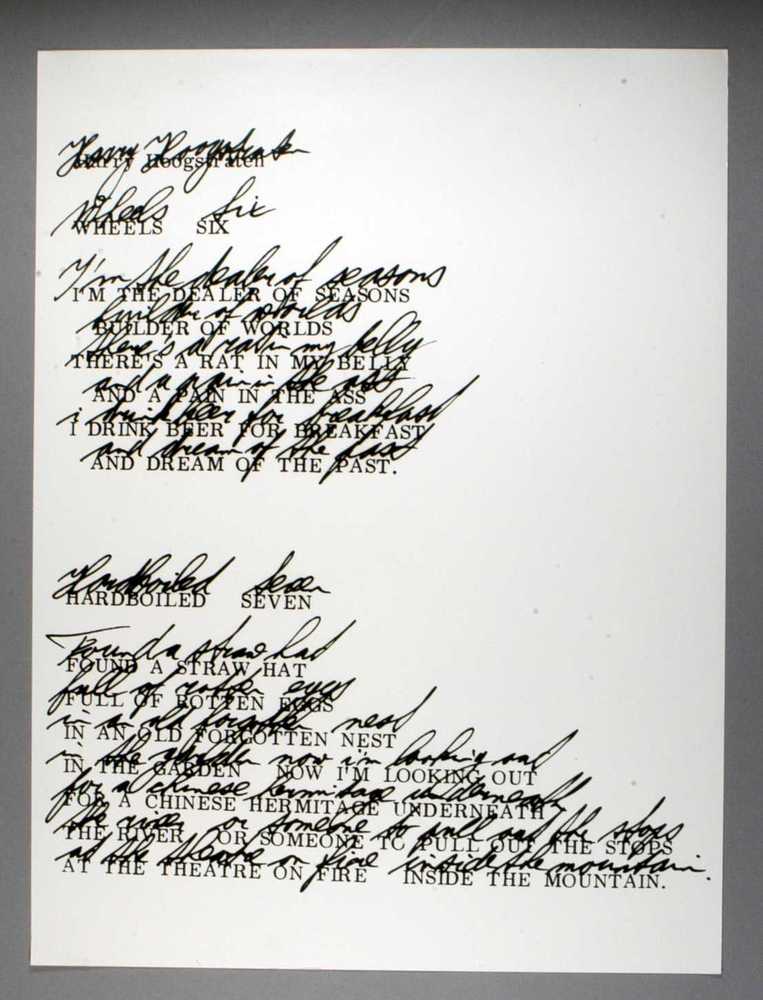 Harry Hoogstraten
Harry Hoogstraten
Wheels Six
WHEELS SIX
I'm the dealer of seasons
I'M THE DEALER OF SEASONS
builder of worlds
BUILDER OF WORLDS
there's a rat in my belly
THERE'S A RAT IN MY BELLY
and a pain in the ass
AND A PAIN IN THE ASS
i drink beer for breakfast
I DRINK BEER FOR BREAKFAST
and dream of the past
AND DREAM OF THE PAST.
Hardboiled Seven
HARDBOILED SEVEN
Found a straw hat
FOUND A STRAW HAT
full of rotten eggs
FULL OF ROTTEN EGGS
in an old forgotten nest
IN AN OLD FORGOTTEN NEST
in the garden now i'm looking out
IN THE GARDEN NOW I'M LOOKING OUT
for a chinese hermitage underneath
FOR A CHINESE HERMITAGE UNDERNEATH
the river or someone to pull out the stops
THE RIVER OR SOMEONE TO PULL OUT THE STOPS
at the theatre on fire inside the mountain.
AT THE THEATRE ON FIRE INSIDE THE MOUNTAIN.